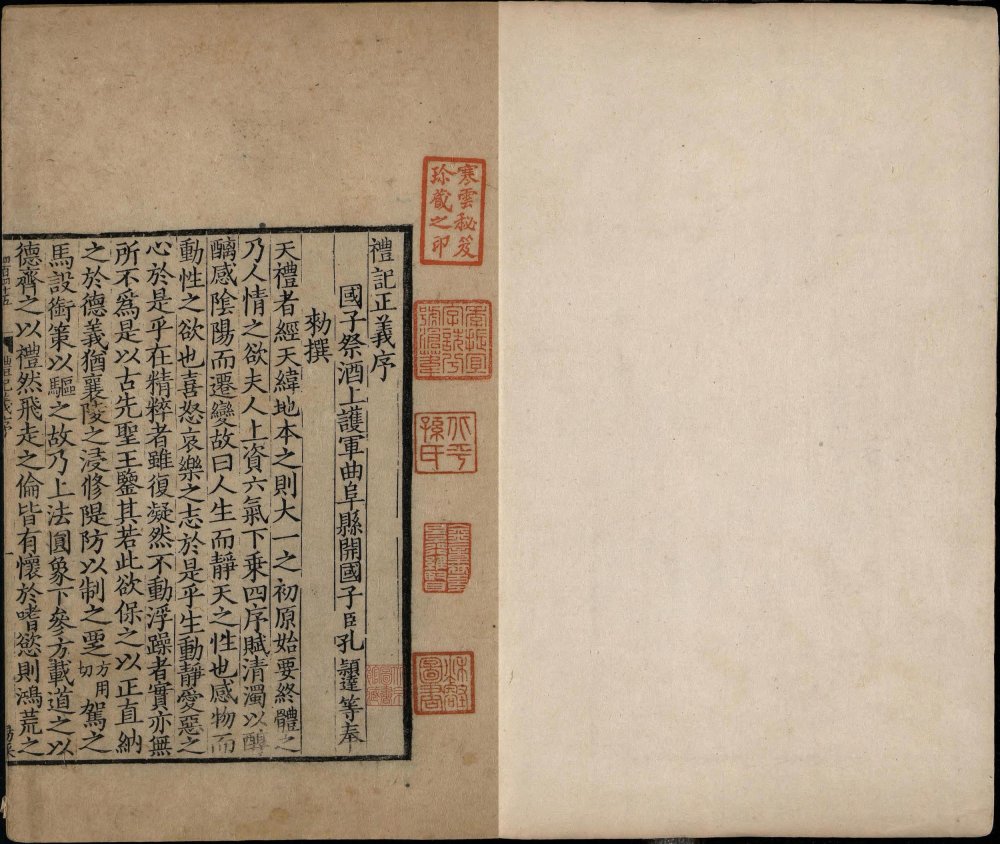 禮記正義序
國子祭酒上護軍曲阜縣開國子臣孔穎達等奉
勑撰
夫禮者經天緯地本之則大一之初原始要終體之
乃人情之欲夫人上資六氣下乘四序賦清濁以醇
醨感陰陽而遷變故曰人生而靜天之性也感物而
動性之欲也喜怒哀樂之志於是乎生動靜愛惡之
心於是乎在精粹者雖復凝然不動浮躁者實亦無
所不爲是以古先聖王鑒其若此欲保之以正直納
之於德義猶襄陵之浸修隄防以制之覂方用切駕之
馬設銜策以驅之故乃上法圓象下參方載道之以
德齊之以禮然飛走之倫皆有懷於嗜慾則鴻荒之
寒雲秘笈
珍藏之印
北平
孫氏
圖書